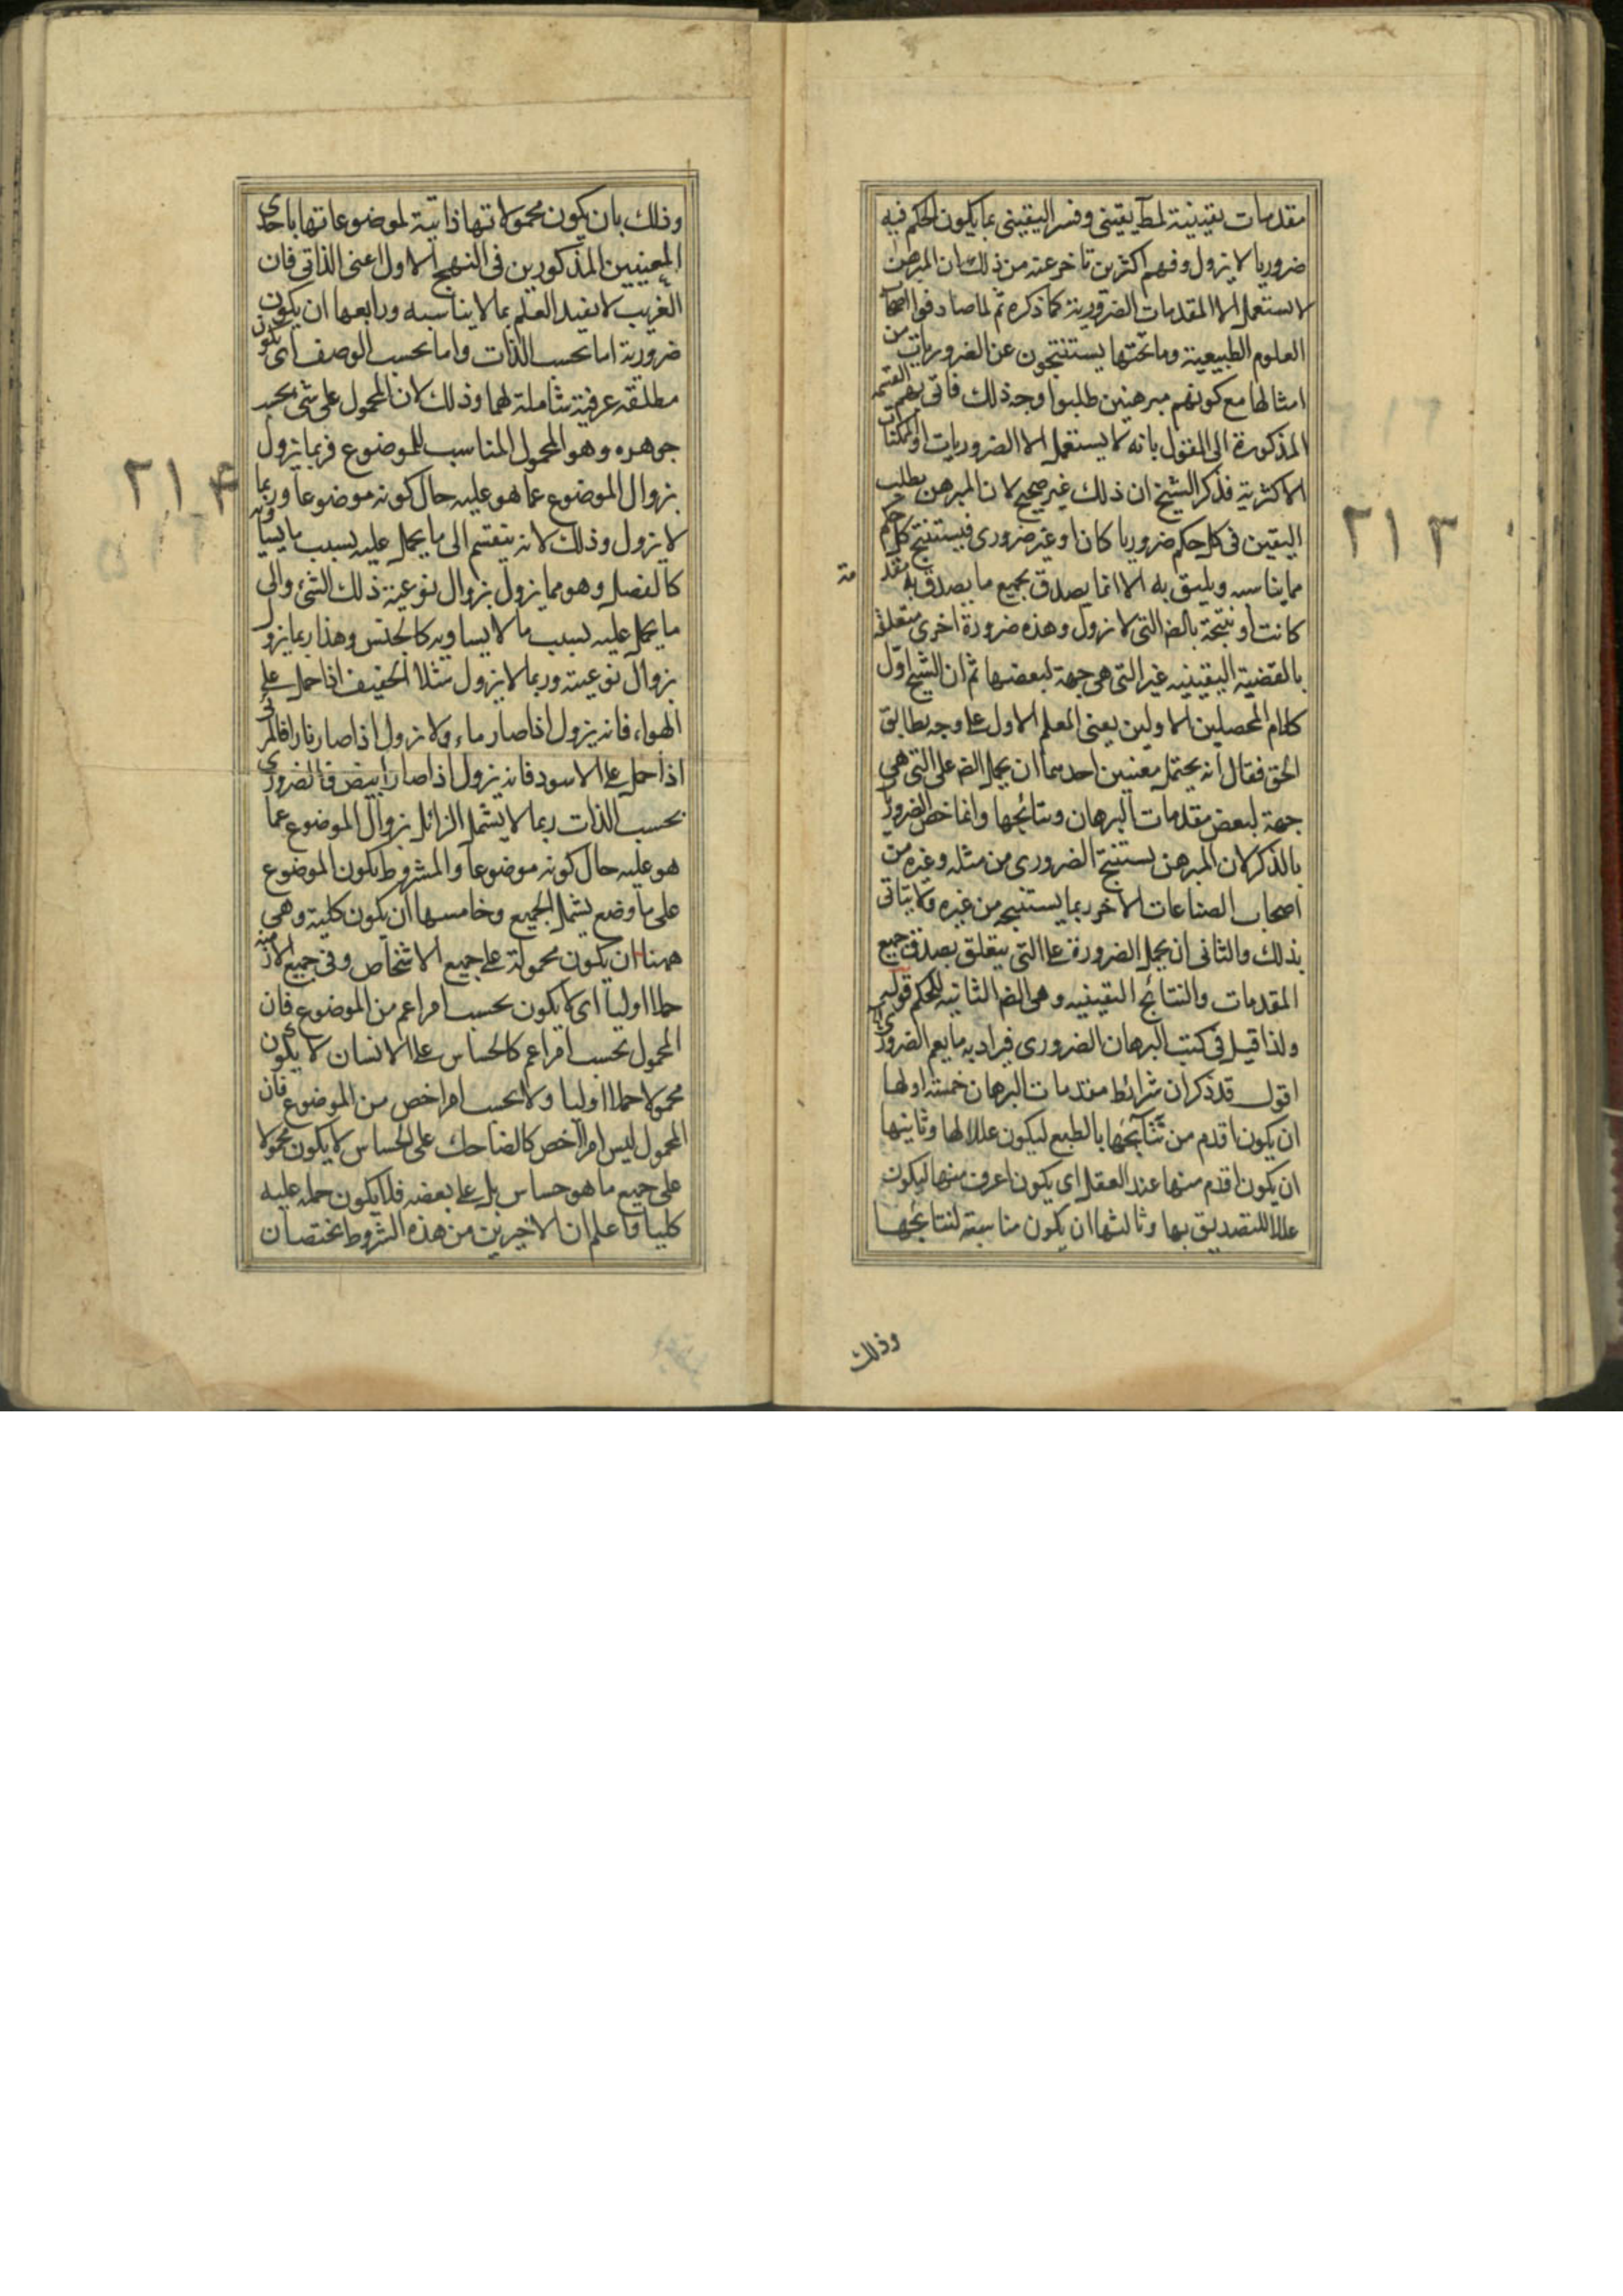 مقدمات يقينية لمط يقينى وفسر اليقينى بما يكون الحكم فيه
ضروريا لا يزول وفهم اكثر من تاخر عنه من ذلك ان المبرهن
لا يستعمل الا المقدمات الضرورية كما ذكره ثم لما صادفوا اصحاب
العلوم الطبيعية وما تحتها يستنتجون عن الضروريات من
امثالها مع كونهم مبرهنين طلبوا وجه ذلك فاتى بهم القسمة
المذكورة الى القول بانه لا يستعمل الا الضروريات او الممكنات
الاكثرية فذكر الشيخ ان ذلك غير صحيح لان المبرهن يطلب
اليقين فى كل حكم ضروريا كان او غير ضرورى فيستنتج كل حكم
مما يناسبه ويليق به الا انما يصدق بجميع ما يصدق به مقد
مة
كانت او نتيجة بالضـ التى لا تزول وهذه ضرورة اخرى متعلقة
بالقضية اليقينيه غير التى هى جهة لبعضها ثم ان الشيخ اوّل
كلام المحصلين الاولين يعنى المعلم الاول على وجه يطابق
الحق فقال انه يحتمل معنيين احدهما ان يحمل الضـ على التى هى
جهة لبعض مقدمات البرهان ونتائجها وانما خص الضرورى
بالذكر لان المبرهن يستنتج الضرورى من مثله وغيره من
اصحاب الصناعات الاخر ربما يستنتجه من غيره ولا يتاتى
بذلك والثانى ان يحمل الضرورة على التى يتعلق بصدق جميع
المقدمات والنتائج اليقينيه وهى الضـ الثانيه للحكم قوله
ولذا قيل فى كتب البرهان الضرورى فيراد به ما يعم الضرورى
اقول قد ذكر ان شرائط مقدمات البرهان خمسة اولها
ان يكون اقدم من نتائجها بالطبع ليكون عللا لها وثانيها
ان يكون اقدم منها عند العقل اى يكون اعرف منها ليكون
عللا للتصديق بها وثالثها ان يكون مناسبة لنتائجها
وذلك
٢١٣
وذلك بان يكون محمولاتها ذاتية لموضوعاتها باحدى
المعنيين المذكورين فى النهج الاول اعنى الذاتى فان
الغريب لا يفيد العلم بما لا يناسبه ورابعها ان يكون
ضرورية اما بحسب الذات واما بحسب الوصف اى يكون
مطلقه عرفية شاملة لهما وذلك لان المحمول على شئ بحسب
جوهره وهو المحمول المناسب للموضوع فربما يزول
بزوال الموضوع عما هو عليه حال كونه موضوعا وربما
لا يزول وذلك لانه ينقسم الى ما يحمل عليه بسبب ما يساويه
كالفصل وهو مما يزول بزوال نوعية ذلك الشئ والى
ما يحمل عليه بسبب ما لا يساويه كالجنس وهذا ربما يزول
بزوال نوعيته وربما لا يزول مثلا الخفيف اذا حمل على
الهواء فانه يزول اذا صار ماء ولا يزول اذا صار نارا فالمرئى
اذا حمل على الاسود فانه يزول اذا صار ابيض فالضرورى
بحسب الذات ربما لا يشمل الزائل بزوال الموضوع عما
هو عليه حال كونه موضوعا والمشروط بكون الموضوع
على ما وضع يشمل الجميع وخامسها ان يكون كلية وهى
ههنا ان يكون محمولة على جميع الاشخاص وفى جميع الازمنة
حملا اوليا اى لا يكون بحسب امر اعم من الموضوع فان
المحمول بحسب امر اعم كالحساس على الانسان لا يكون
محمولا حملا اوليا ولا بحسب امر اخص من الموضوع فان
المحمول ليس امرا اخص كالضاحك على الحساس لا يكون محمولا
على جميع ما هو حساس بل على بعضه فلا يكون حمله عليه
كليا واعلم ان الاخيرين من هذه الشروط تختصان
٢١۴